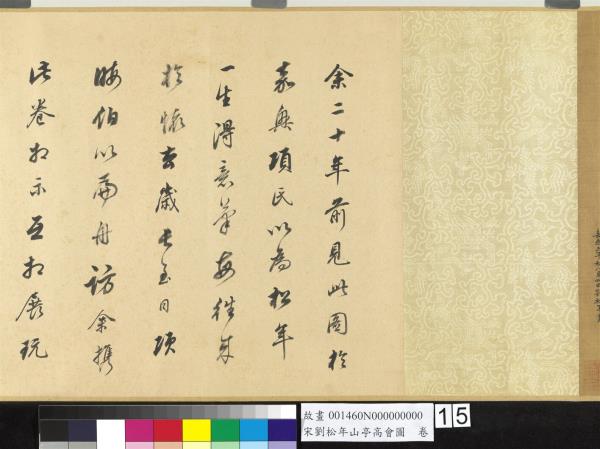 余二十年前見此圖於
嘉興項氏以為松年
一生得意筆每往來
於懷去歲長至日項
晦伯以扁舟訪余攜
此卷相示互相展玩
故畫 001460N000000000
宋劉松年山亭高會圖 卷
15